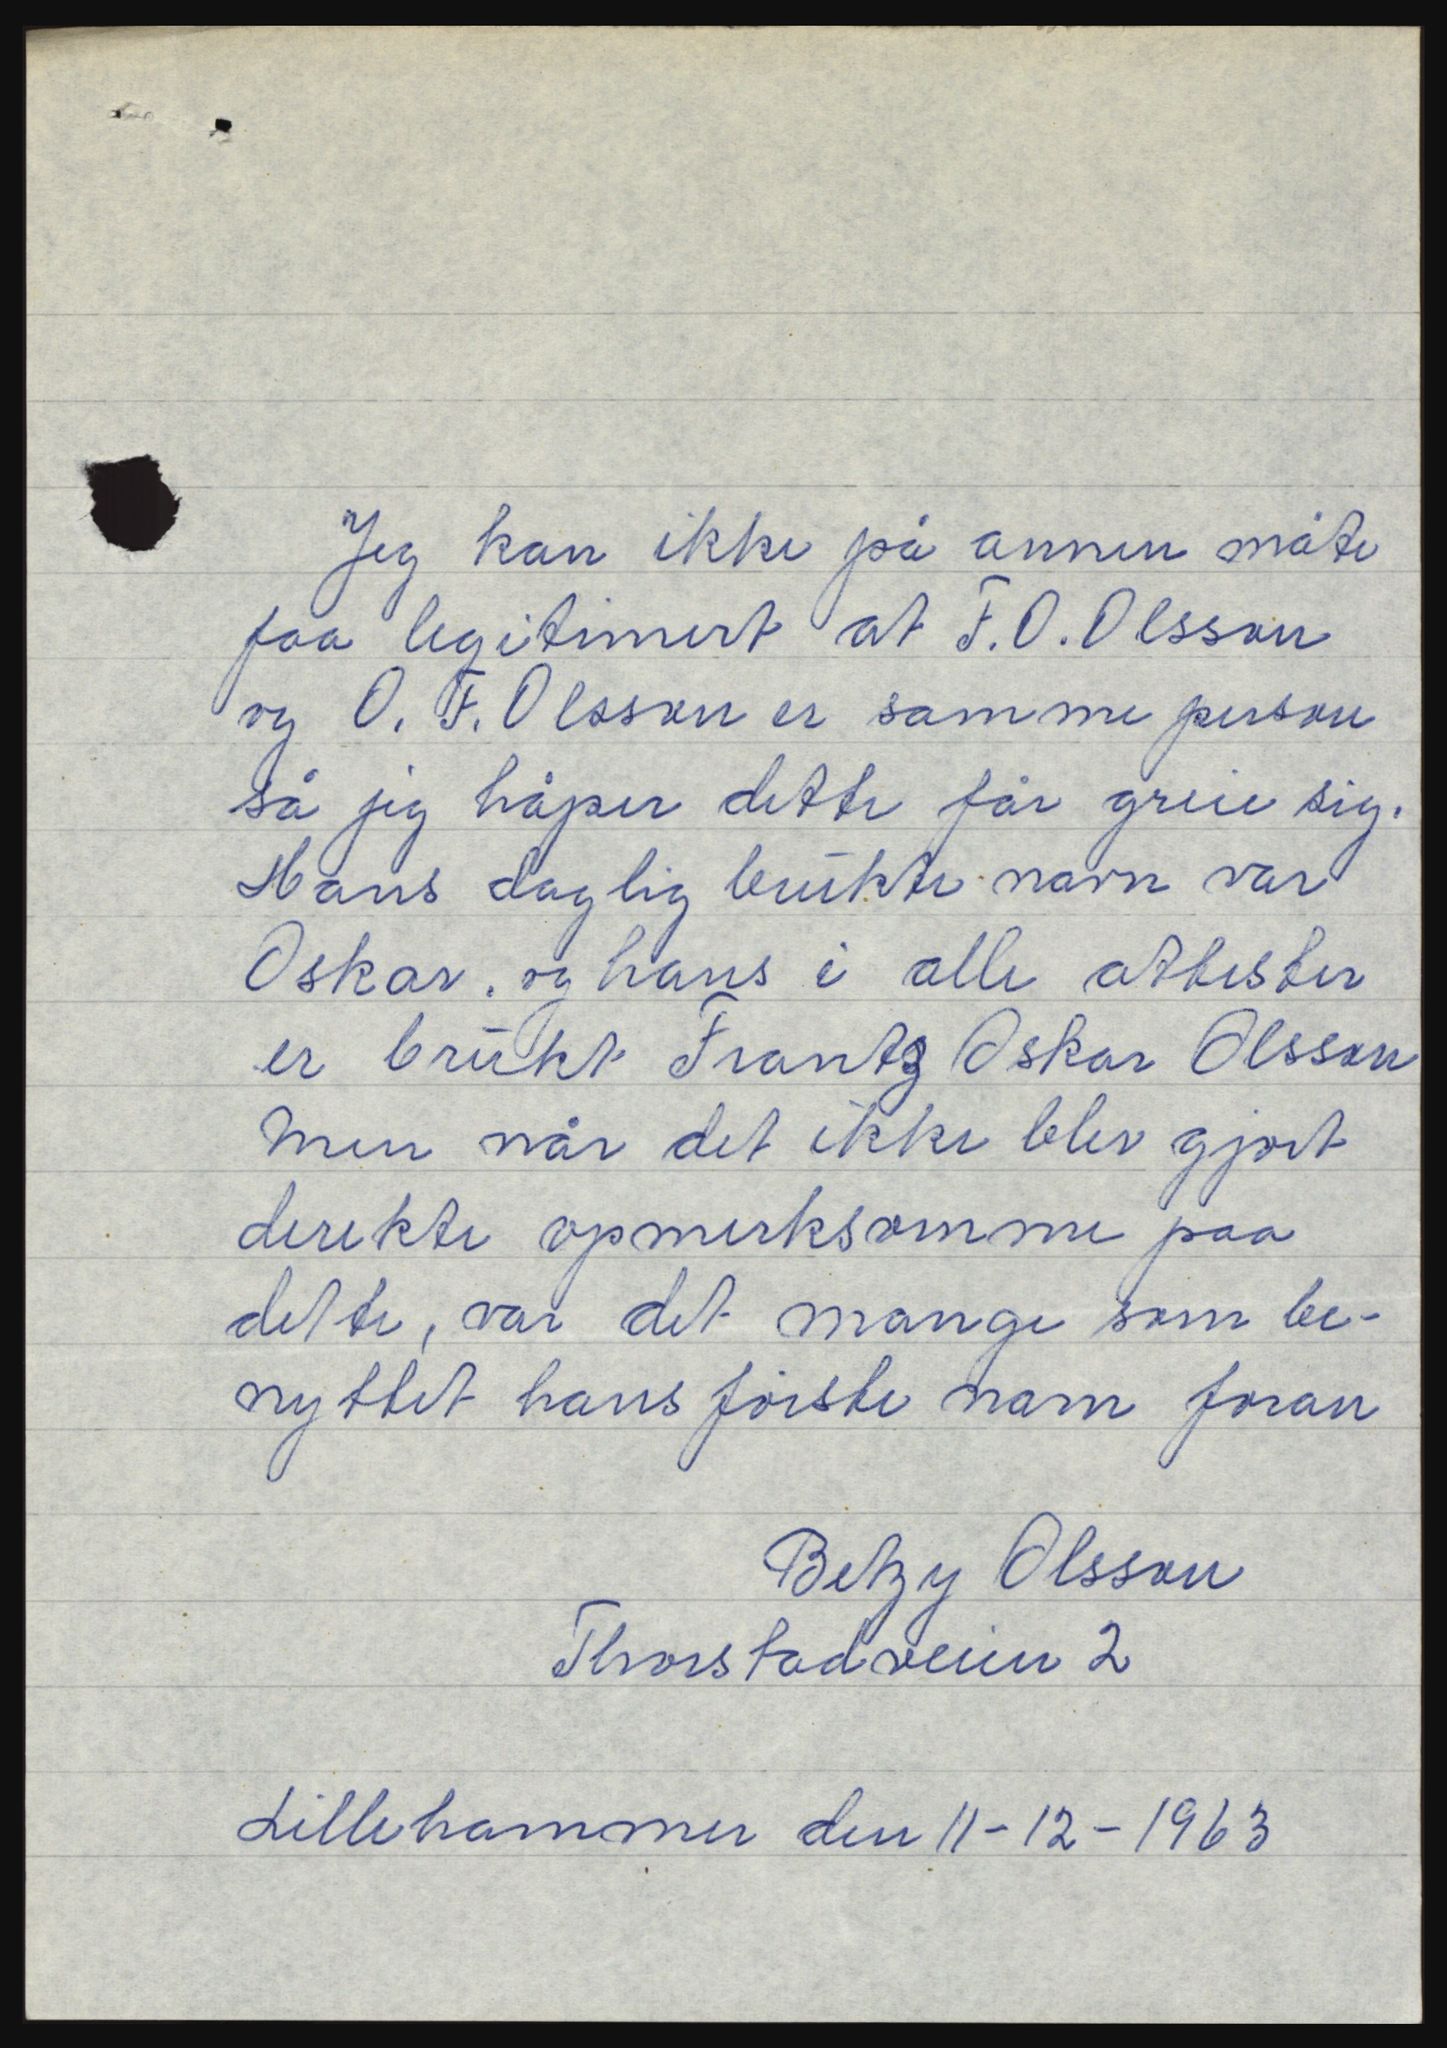 Jeg kan ikke på annen måte
faa legitimert at F.O. Olsson
og O.F. Olsson er samme person
så jeg håper dette får greie sig.
Hans daglig brukte navn var
Oskar. og hans i alle attester
er brukt Frantz Oskar Olsson
Men når det ikke blev gjort
derekte opmerksomme paa
dette, var det mange som be-
nyttet hans förste navn foran
Betzy Olsson
Thorstadveien 2
Lillehammer den 11-12-1963